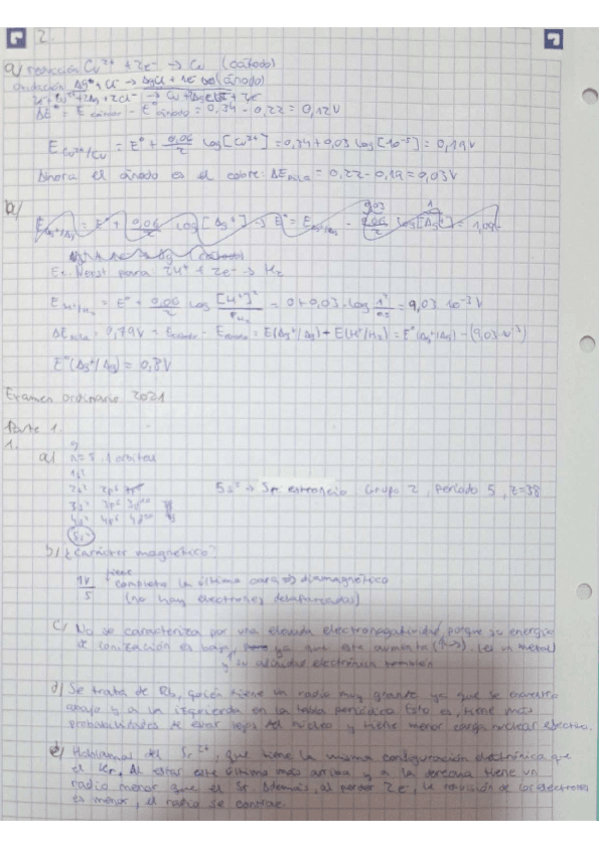 2.
a) reacción Cu²⁺ + 2e⁻ → Cu (cátodo)
(ánodo)
ΔE° = E cátodo - E° ánodo = 0,34 - 0,22 = 0,12V
E Cu²⁺/Cu = E° + 0,06/2 log[Cu²⁺] = 0,34 + 0,03 log[10⁻⁵] = 0,19V
Ahora el ánodo es el cobre: ΔE pila = 0,22 - 0,19 = 0,03V
b)
Ec. Nerst para 2H⁺ + 2e⁻ → H₂
E H⁺/H₂ = E° + 0,06/2 log [H⁺]²/P H₂ = 0 + 0,03 · log 1²/0,5 = 9,03 · 10⁻³ V
E°(Ag⁺/Ag) = 0,8V
Examen ordinario 2021
Parte 1.
1.
a) n=5, 1 orbital
1s²
2s² 2p⁶
3s² 3p⁶ 3d¹⁰
5s² → Sr estroncio. Grupo 2, período 5, z=38
5s²
b) ¿Carácter magnético?
tiene completa la última capa → diamagnético
(no hay electrones desapareados)
c) No se caracteriza por una elevada electronegatividad, porque su energía
de ionización es baja, ya que esta aumenta Es un metal
y su afinidad electrónica también
d) Se trata de Rb, quien tiene un radio muy grande ya que se encuentra
abajo y a la izquierda en la tabla periódica. Esto es, tiene más
probabilidades de estar lejos del núcleo y tiene menor carga nuclear efectiva.
e) Hablamos del Sr²⁺, que tiene la misma configuración electrónica que
el Kr. Al estar este último más arriba y a la derecha tiene un
radio menor que el Sr. Además, al perder 2e⁻, la repulsión de los electrones
es menor, el radio se contrae.